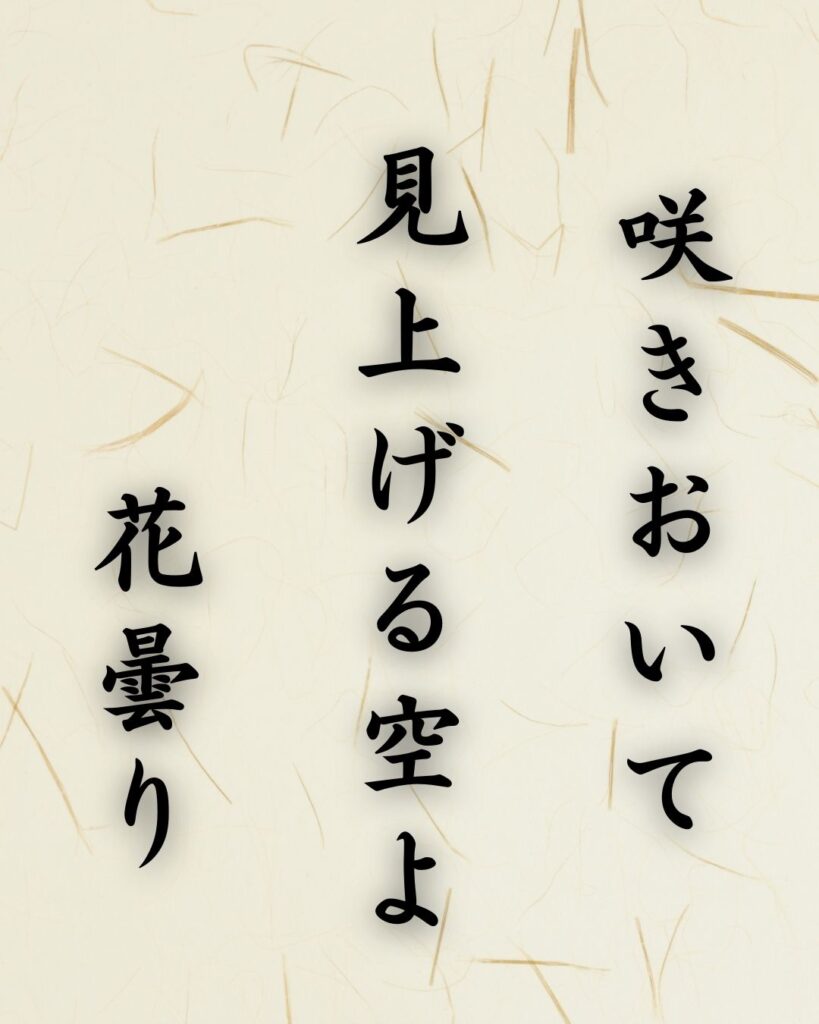 咲きおいて
見上げる空よ
花曇り